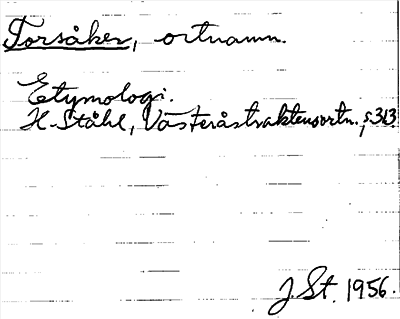 Torsåker, ortnamn.
Etymologi.
H. Ståhl, Västeråstraktens ortn., s. 313.
J. St. 1956.